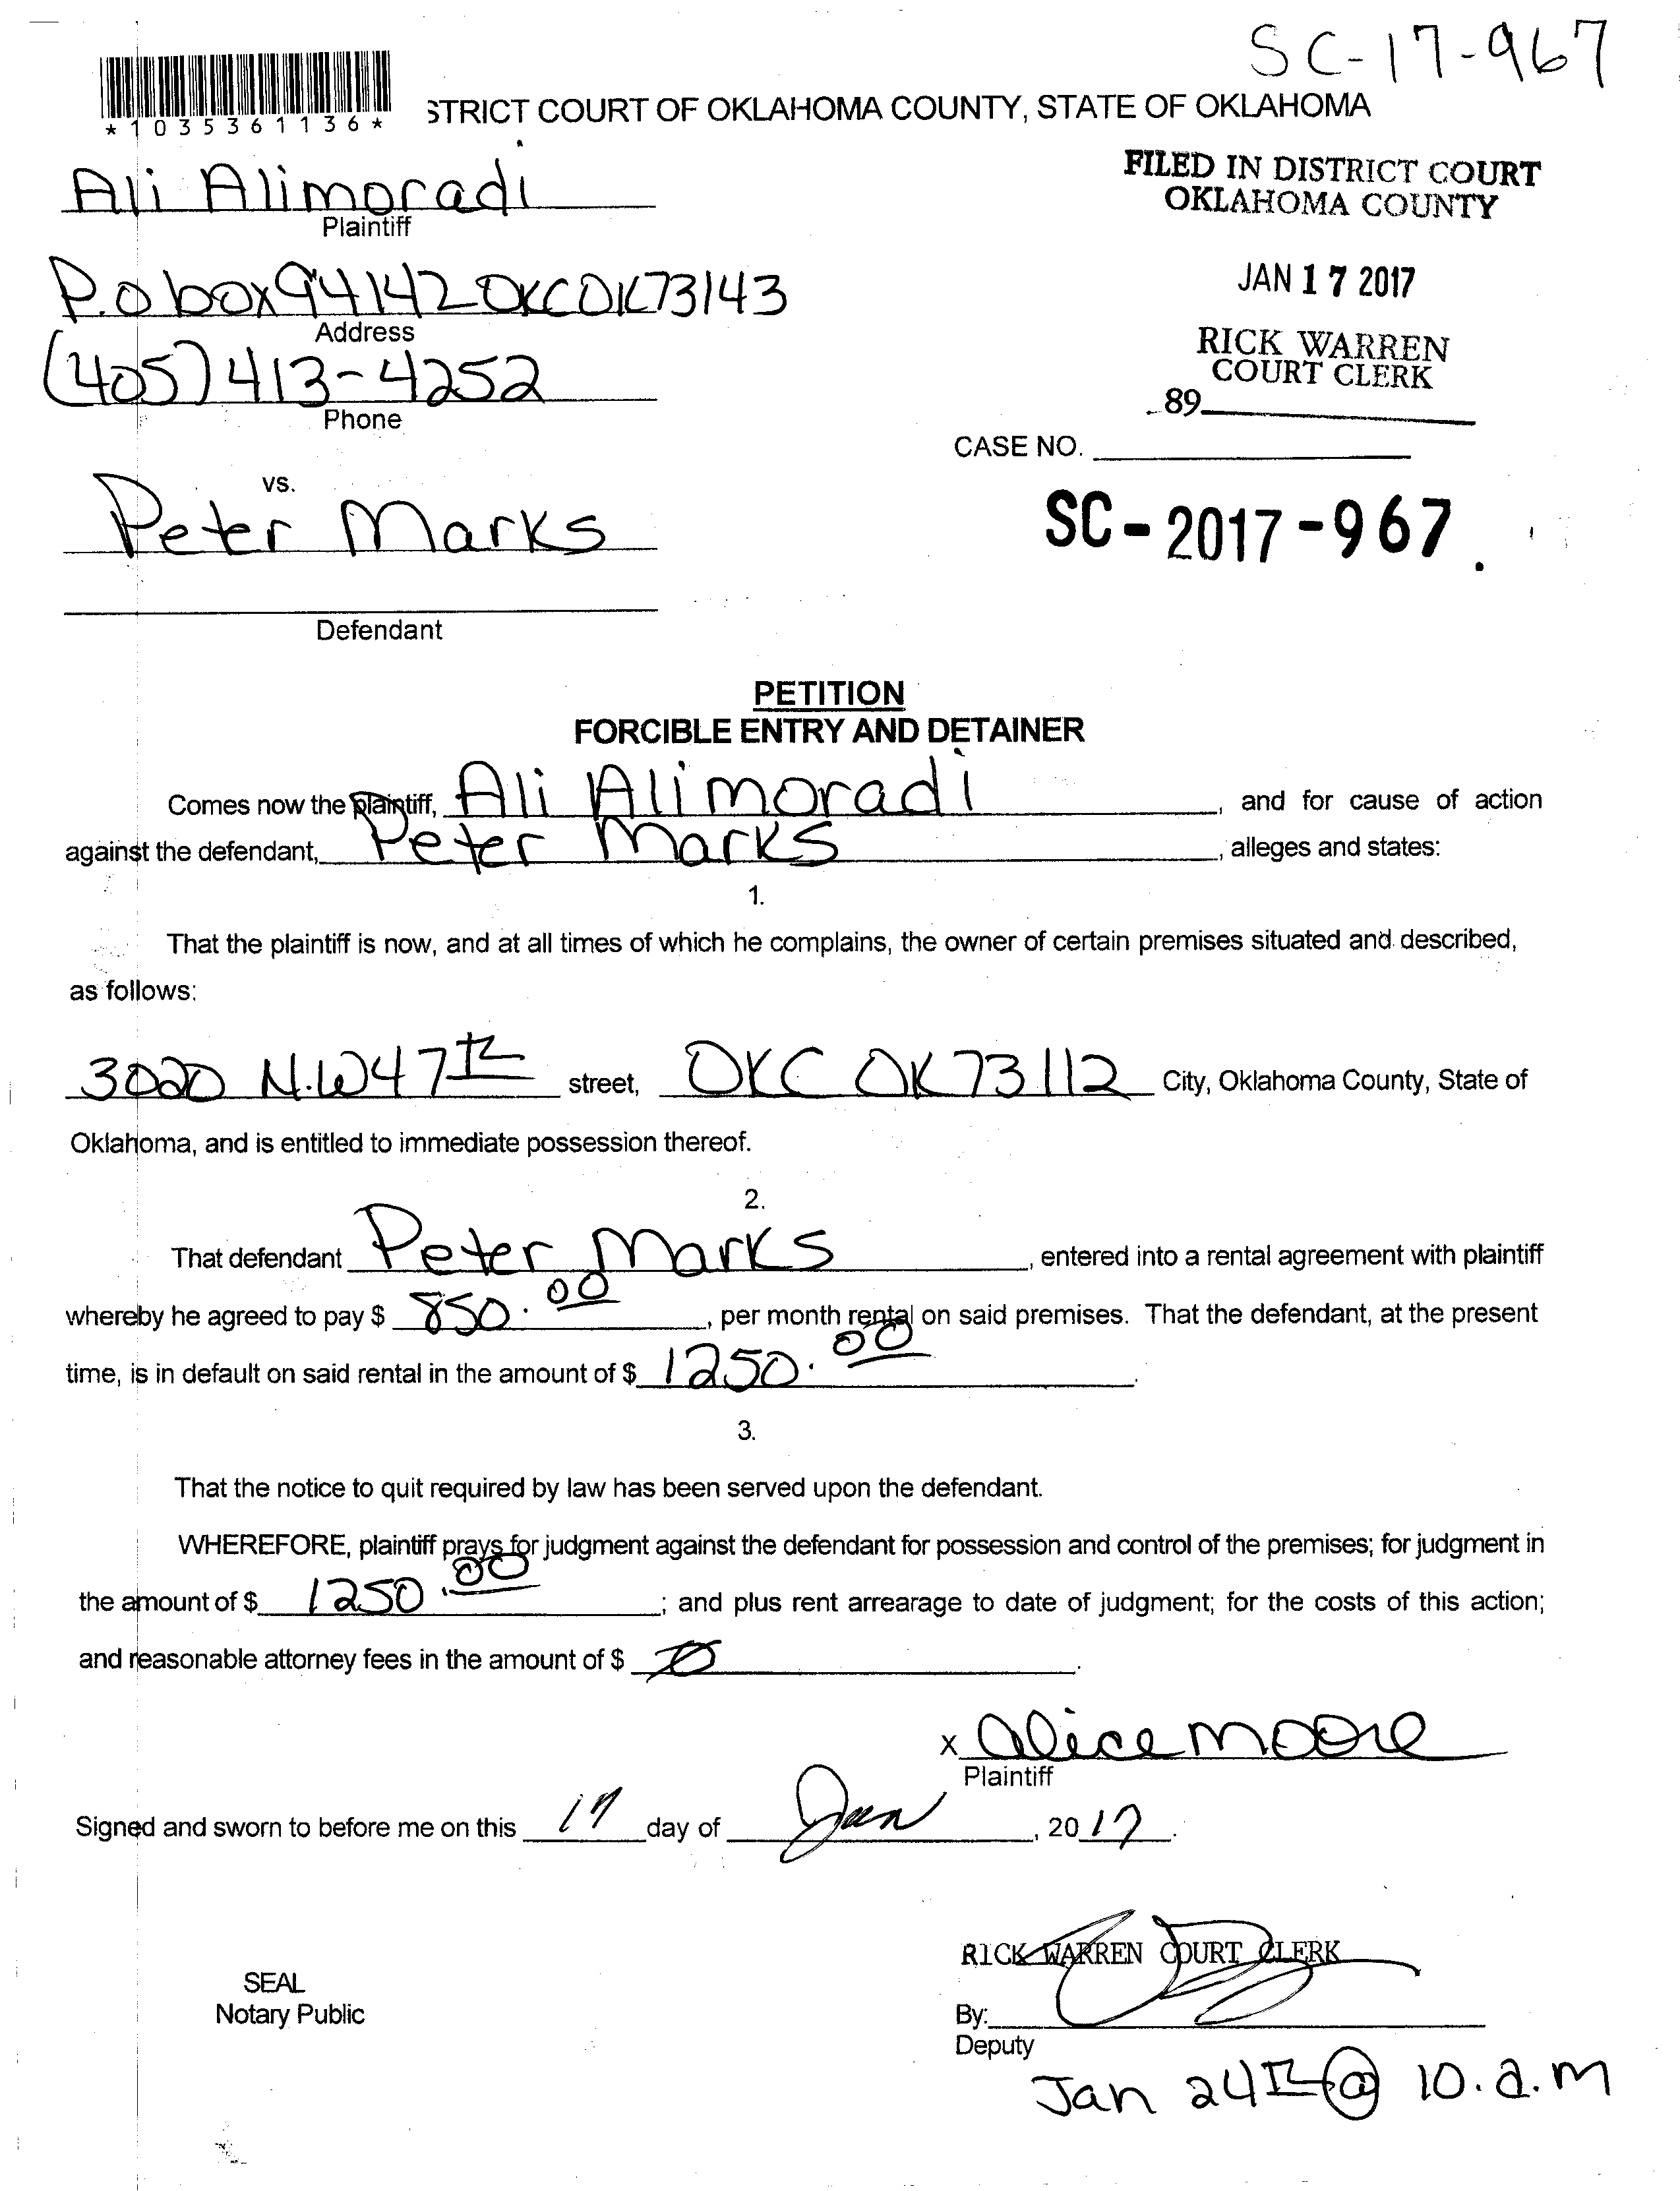 SC-17-967
*1035361136*
STRICT COURT OF OKLAHOMA COUNTY, STATE OF OKLAHOMA
Ali Alimoradi
Plaintiff
FILED IN DISTRICT COURT
OKLAHOMA COUNTY
JAN 17 2017
P.O box 94142 OKC OK 73143
Address
RICK WARREN
COURT CLERK
(405) 413-4252
Phone
89
CASE NO.
vs.
Peter Marks
SC-2017-967.
Defendant
PETITION
FORCIBLE ENTRY AND DETAINER
Comes now the plaintiff, Ali Alimoradi, and for cause of action
against the defendant, Peter Marks, alleges and states:
1.
That the plaintiff is now, and at all times of which he complains, the owner of certain premises situated and described,
as follows:
3020 N.W 47th street, OKC OK 73112 City, Oklahoma County, State of
Oklahoma, and is entitled to immediate possession thereof.
2.
That defendant Peter Marks, entered into a rental agreement with plaintiff
whereby he agreed to pay $ 850.00, per month rental on said premises. That the defendant, at the present
time, is in default on said rental in the amount of $ 1250.00.
3.
That the notice to quit required by law has been served upon the defendant.
WHEREFORE, plaintiff prays for judgment against the defendant for possession and control of the premises; for judgment in
the amount of $ 1250.00; and plus rent arrearage to date of judgment; for the costs of this action;
and reasonable attorney fees in the amount of $
x Alice Moore
Plaintiff
Signed and sworn to before me on this 17 day of Jan, 2017.
RICK WARREN COURT CLERK
SEAL
Notary Public
By:
Deputy
Jan 24th @ 10.a.m